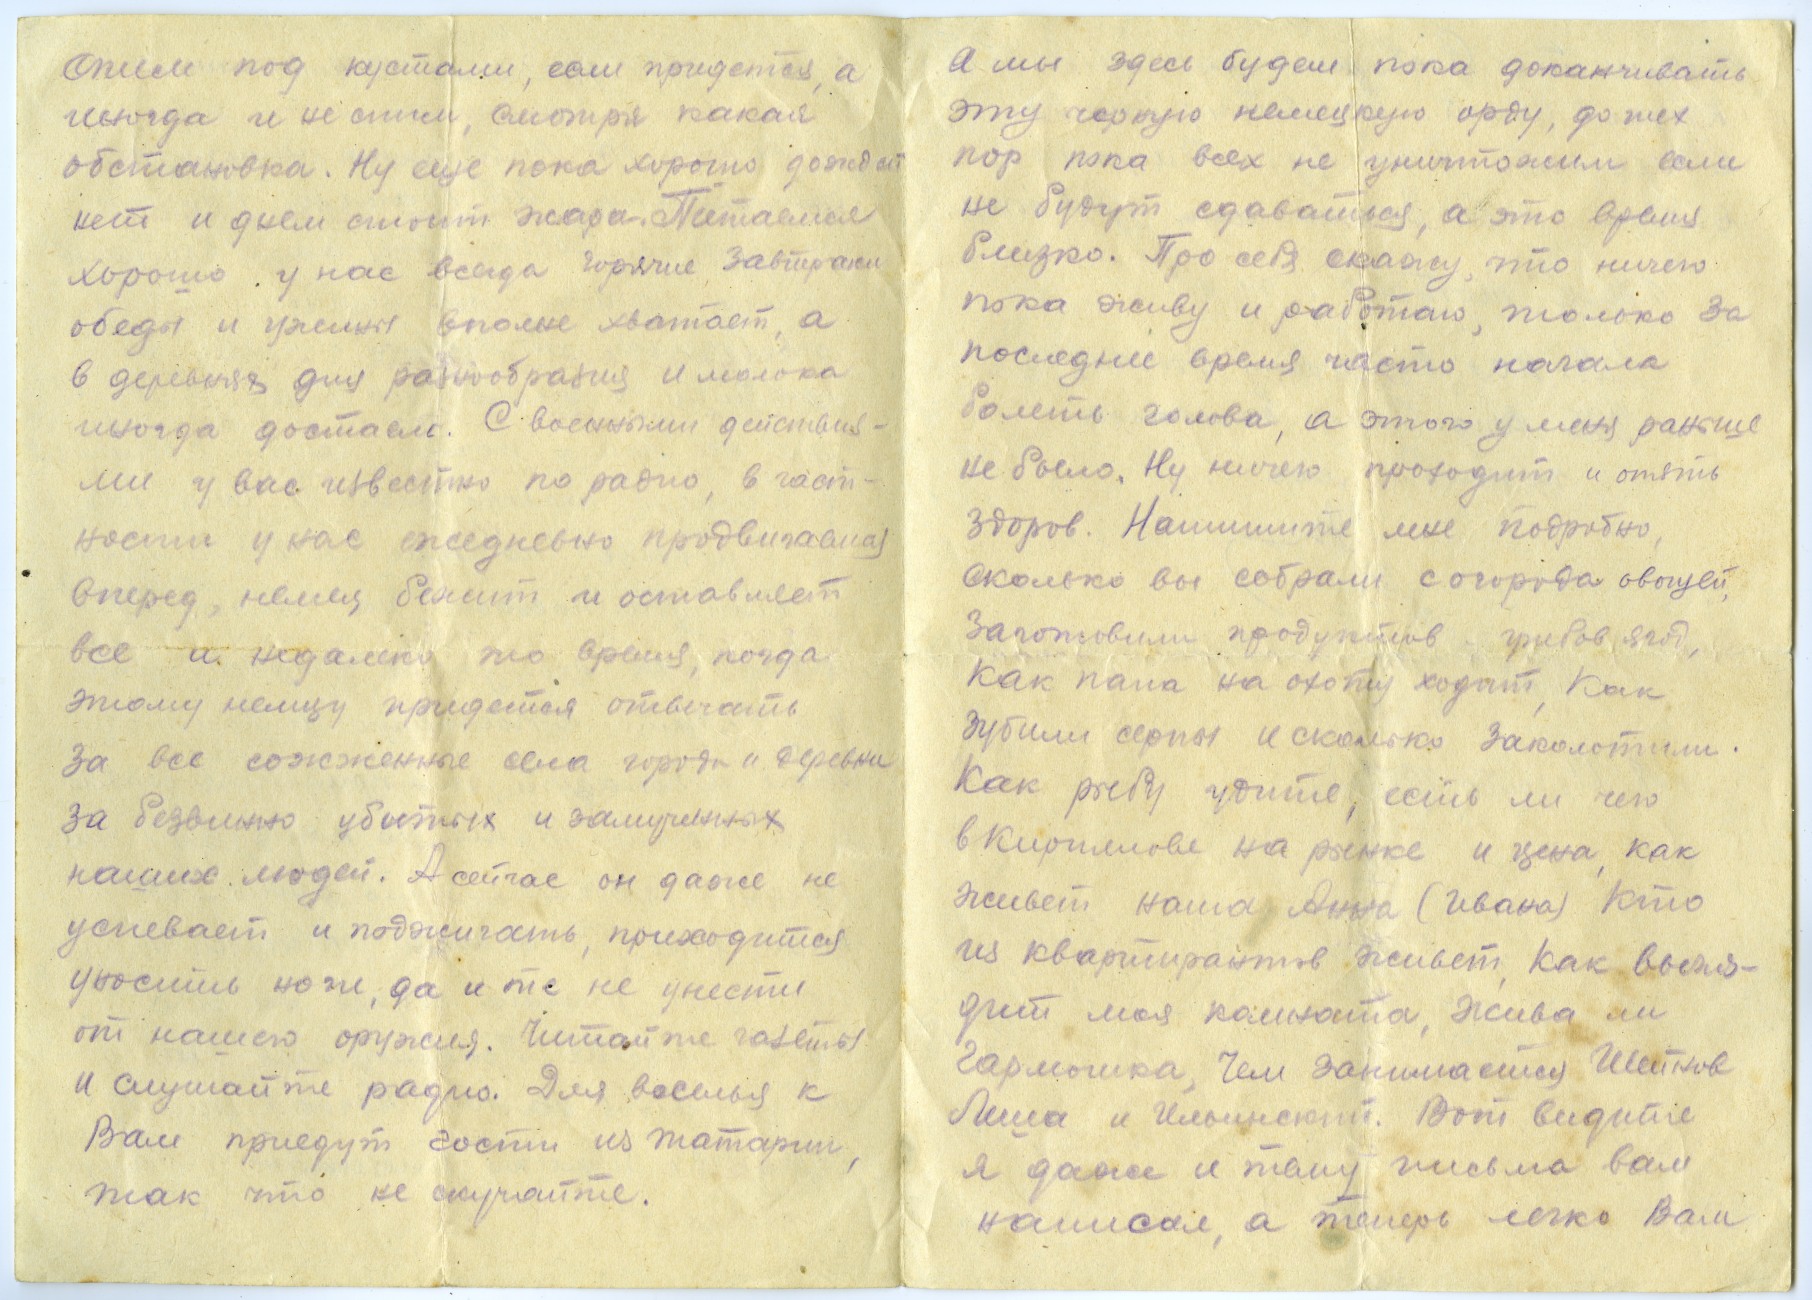 Спим под кустами, если придется, а
иногда и не спим, смотря какая
обстановка. Ну еще пока хорошо дождей
нет и днем стоит жара. Питаемся
хорошо у нас всегда горячие завтраки
обеды и ужины вполне хватает, а
в деревнях для разнообразия и молока
иногда достаем. С военными действия-
ми у вас известно по радио, в част-
ности у нас ежедневно продвигаемся
вперед, немец бежит и оставляет
все и недалеко то время, когда
этому немцу придется отвечать
за все сожженные села города и деревни
за безвинно убитых и замученных
наших людей. А сейчас он даже не
успевает и поджигать, приходится
уносить ноги, да и те не унести
от нашего оружия. Читайте газеты
и слушайте радио. Для веселья к
Вам приедут гости из татарии,
так что не скучайте.
А мы здесь будем пока доканчивать
эту черную немецкую орду, до тех
пор пока всех не уничтожим если
не будут сдаваться, а это время
близко. Про себя скажу, что ничего
пока живу и работаю, только за
последние время часто начала
болеть голова, а этого у меня раньше
не было. Ну ничего проходит и опять
здоров. Напишите мне подробно,
сколько вы собрали с огорода овощей,
Заготовили продуктов грибов ягод,
Как папа на охоту ходит, Как
зубили серпы и сколько заколотили.
Как рыбу удите, есть ли чего
в Кириллове на рынке и цена, как
живет наша Анна (Ивана) Кто
из квартирантов живет, Как выгля-
дит моя комната, Жива ли
Гармошка, Чем занимается
Леша и Ильинский. Вот видите
я даже и тему письма вам
написал, а теперь легко Вам